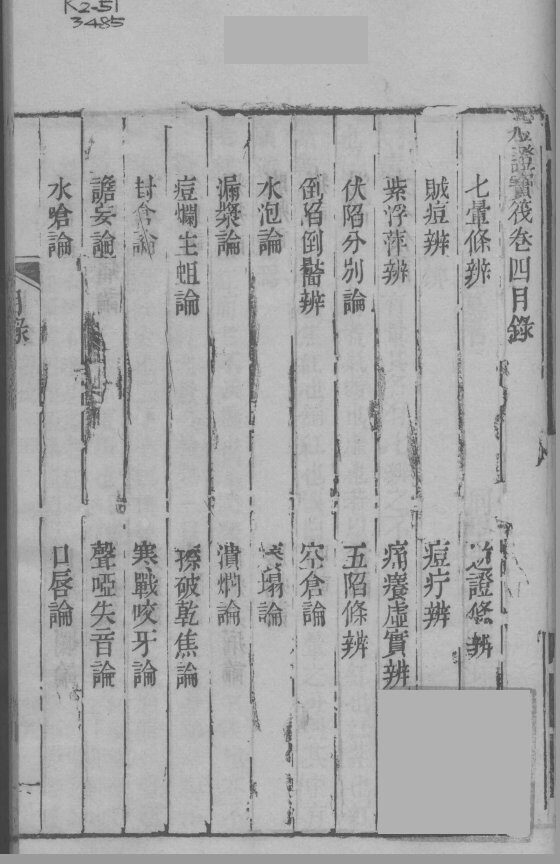 K2-51
3485
證寶筏卷四目錄
七暈條辨
證條辨
賊痘辨
痘疔辨
紫浮萍辨
痛癢虛實辨
伏陷分別論
五陷條辨
倒陷倒靨辨
空倉論
水泡論
塌論
漏漿論
潰爛論
痘爛生蛆論
擦破乾焦論
論
寒戰咬牙論
譫妄論
聲啞失音論
水嗆論
口唇論
目錄